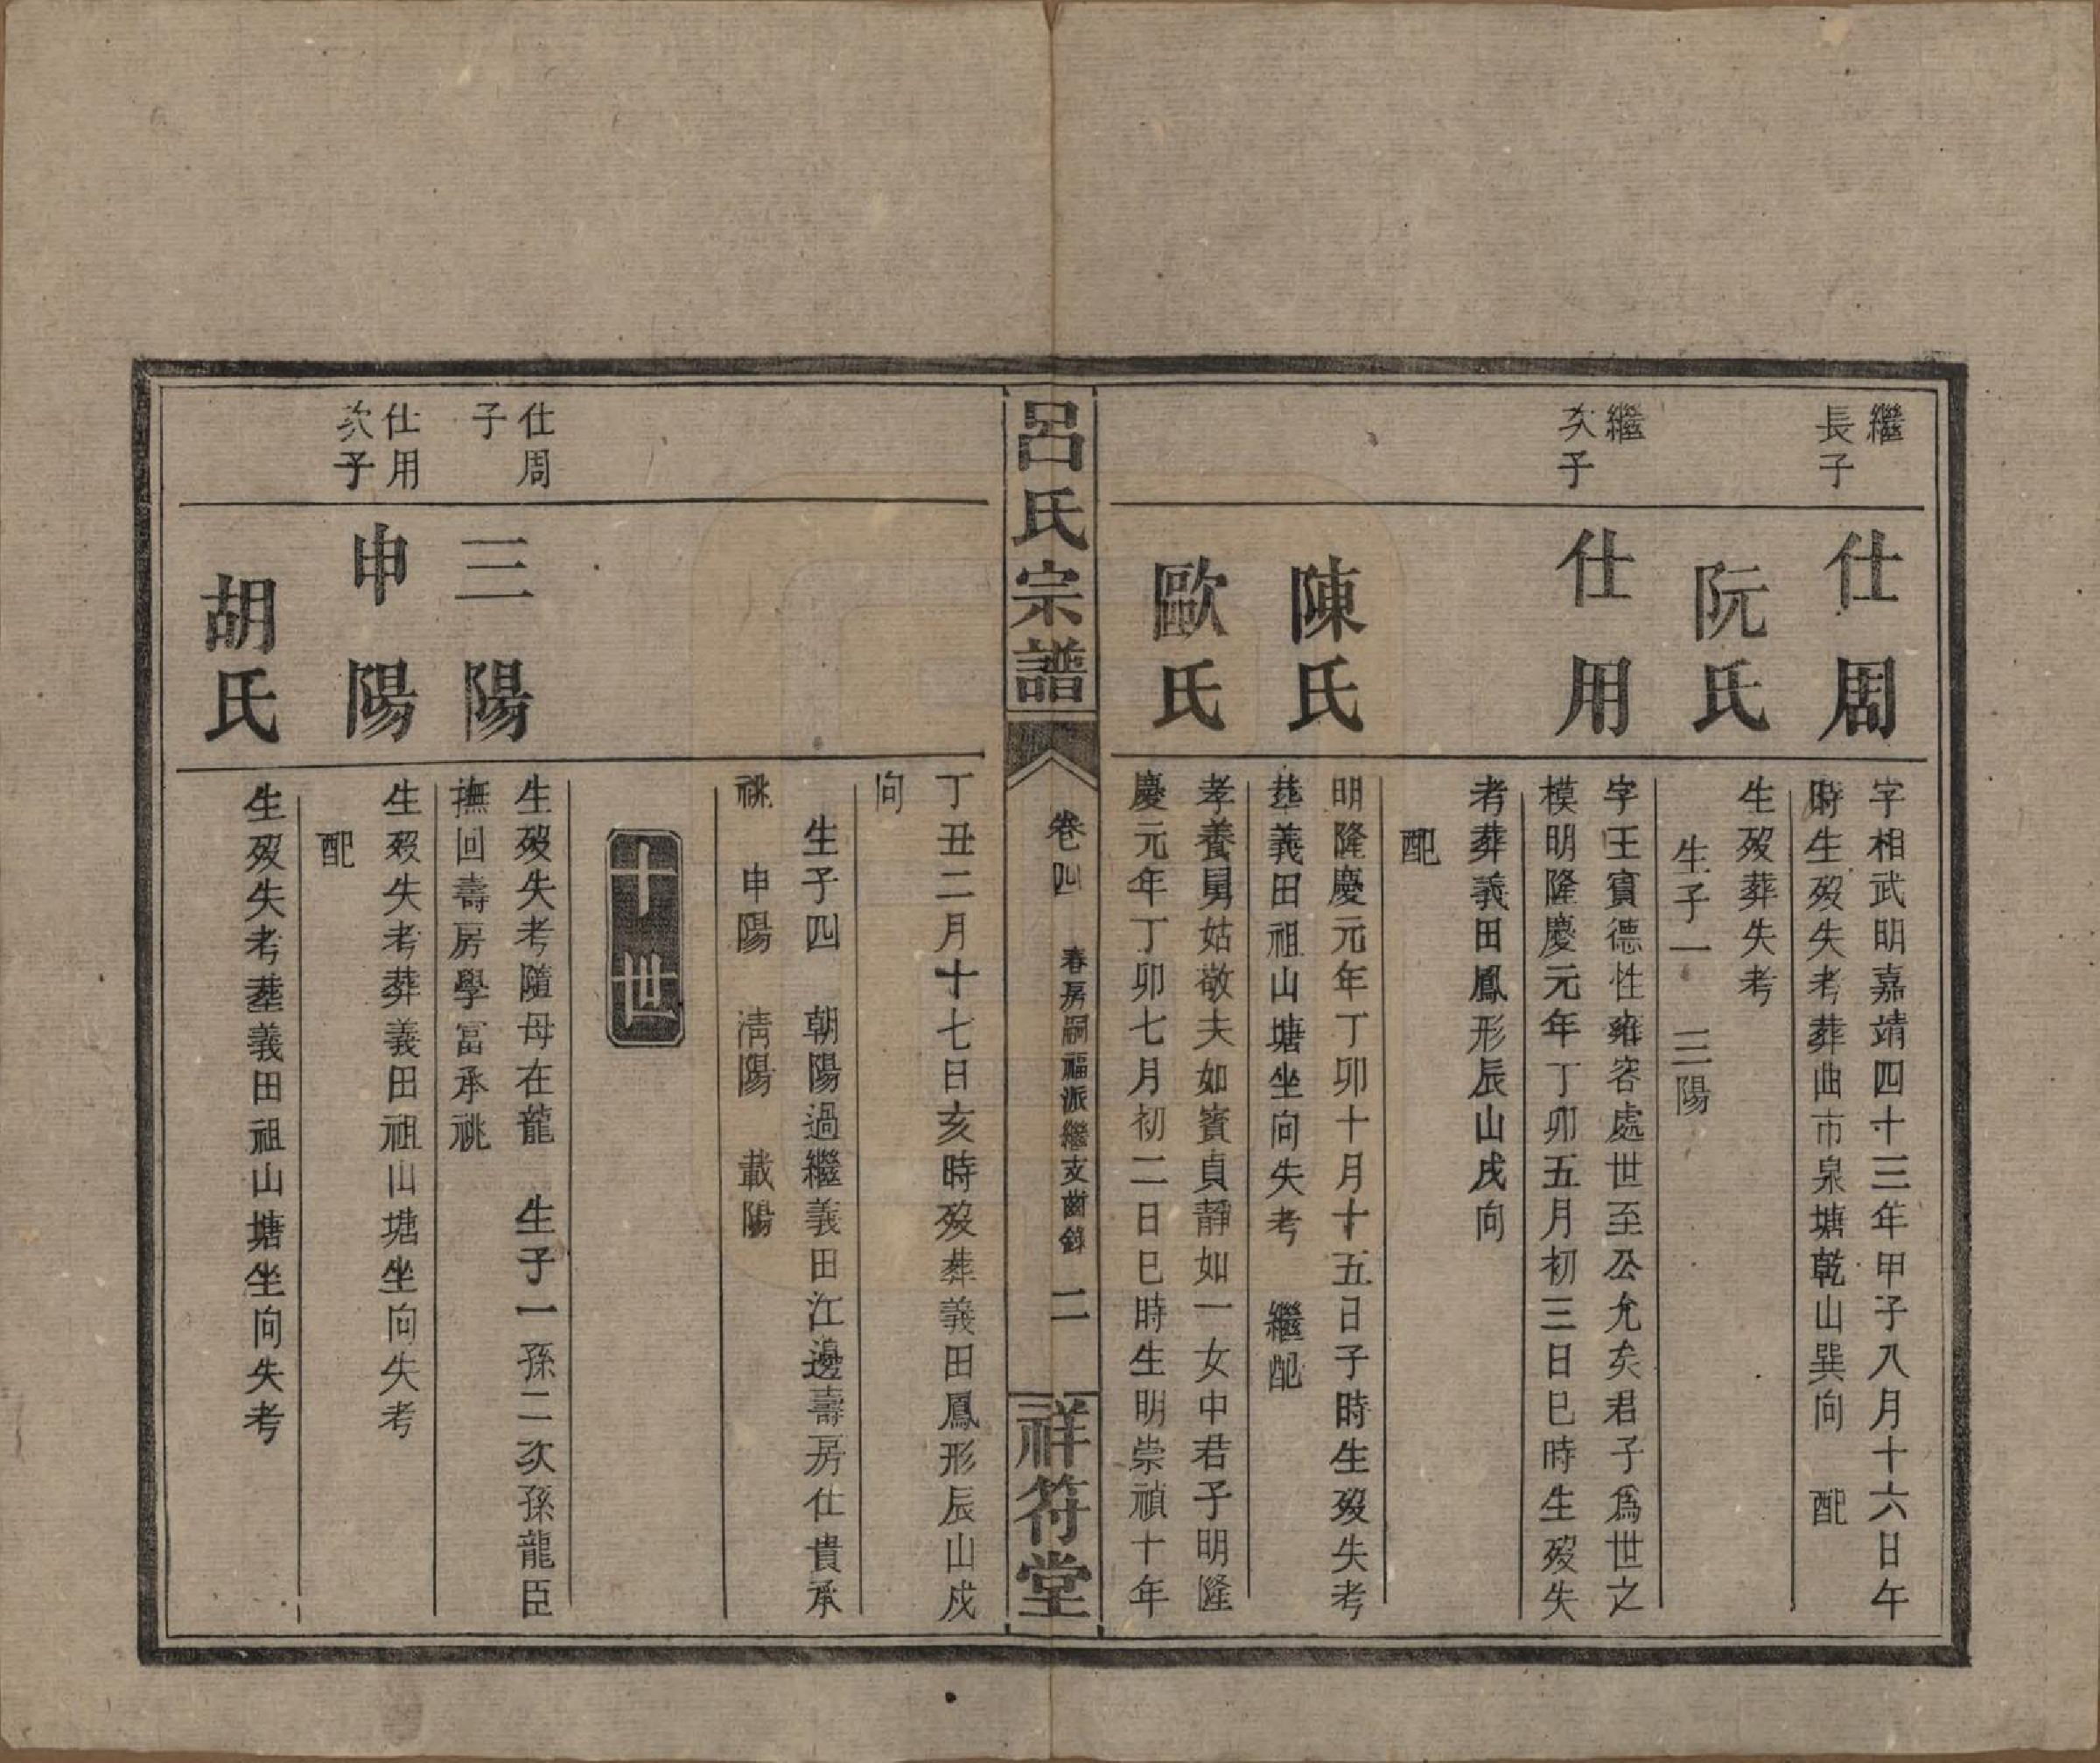 繼
長子
仕周
字相武明嘉靖四十三年甲子八月十六日午
時生歿失考葬曲市泉塘乾山巽向　配
阮氏
生歿葬失考
生子一　三陽
繼
次子
仕用
字王賓德性雍容處世至公允矣君子爲世之
模明隆慶元年丁卯五月初三日巳時生歿失
考葬義田鳳形辰山戌向
配
陳氏
明隆慶元年丁卯十月十五日子時生歿失考
葬義田祖山塘坐向失考　繼配
歐氏
孝養舅姑敬夫如賓貞靜如一女中君子明隆
慶元年丁卯七月初二日巳時生明崇禎十年
呂氏宗譜
卷四　春房嗣福派繼支齒錄　二
祥符堂
丁丑二月十七日亥時歿葬義田鳳形辰山戌
向
生子四　朝陽過繼義田江邊壽房仕貴承
祧　申陽　淸陽　載陽
十世
仕周
子
三陽
生歿失考隨母在龍　生子一孫二次孫龍臣
撫回壽房學富承祧
仕用
次子
申陽
生歿失考葬義田祖山塘坐向失考
配
胡氏
生歿失考葬義田祖山塘坐向失考